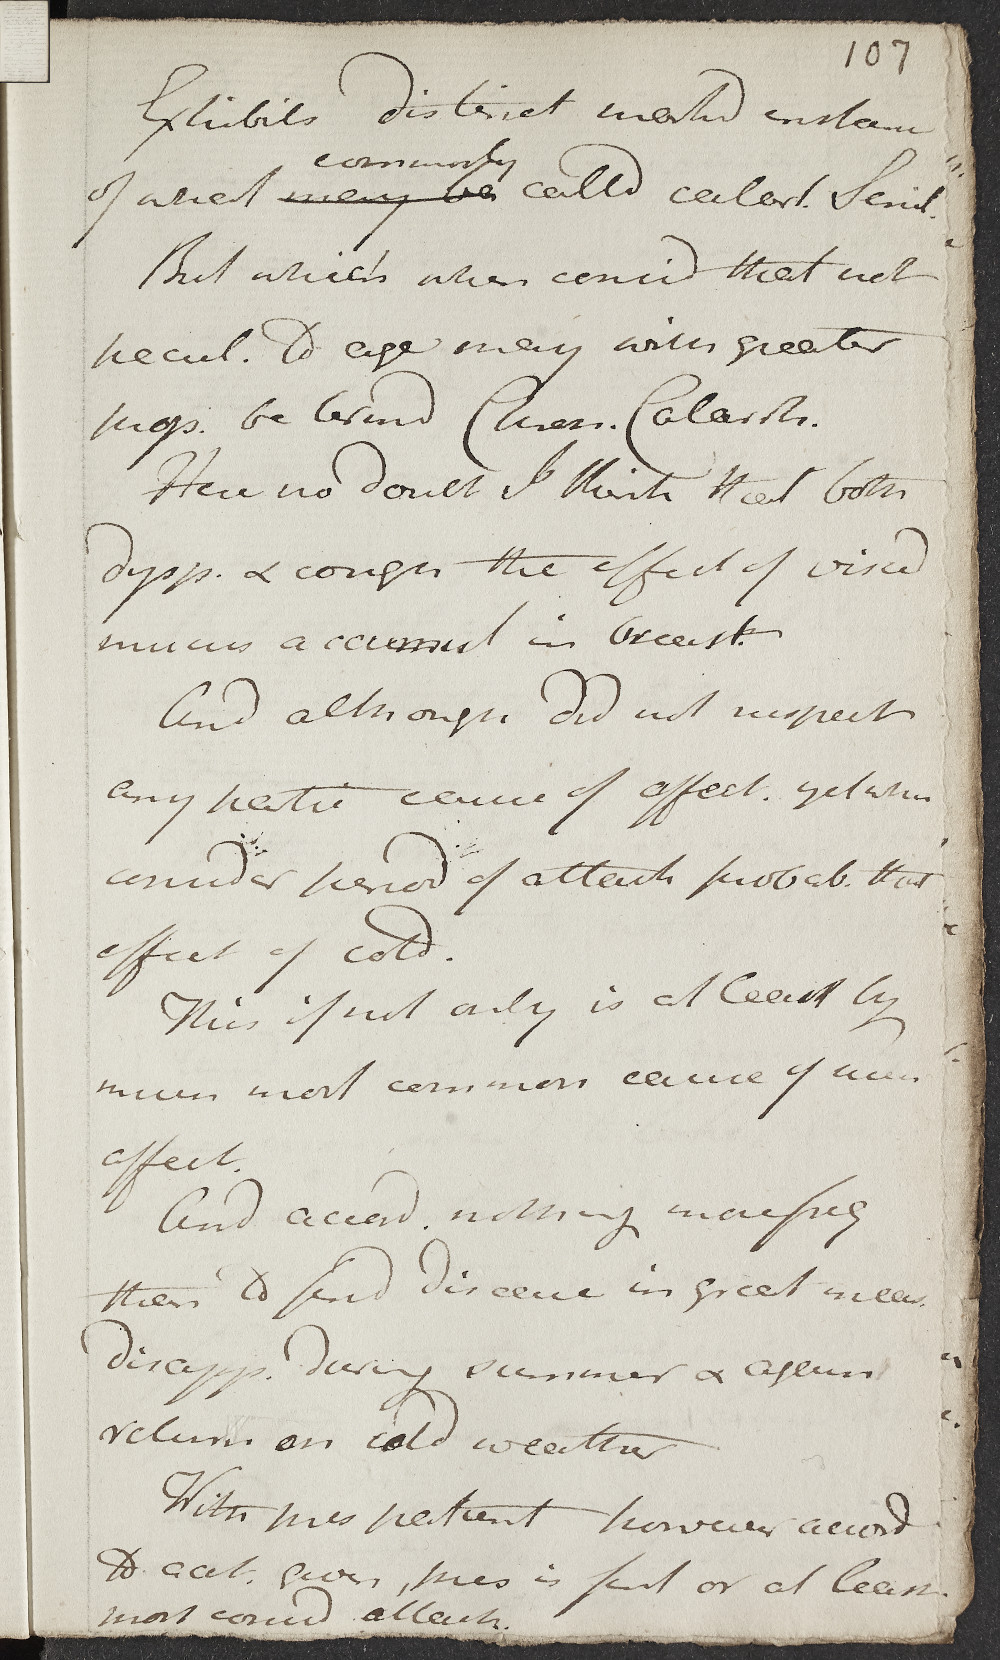 107
Exhibits distinct mark'd instan
commonly
of what may be call'd catarrh. Senil.
But which when consid that not
pecul. to age may with greater
prop. be term'd Chron. Catarrh.
Here no doubt I think that both
dysp. & cough the effect of viscid
mucus accumul in breast.
And although did not suspect
any partic cause of affect. yet when
consider period of attack probab. that
effect of cold.
This if not only is at least by
much most common cause of such
affect.
And accord. nothing more freq
then to find disease in great meas.
disapp. during summer & again
return on cold weather
With pres patient however accord
to acct. given, pres is first or at least
most consid attack.